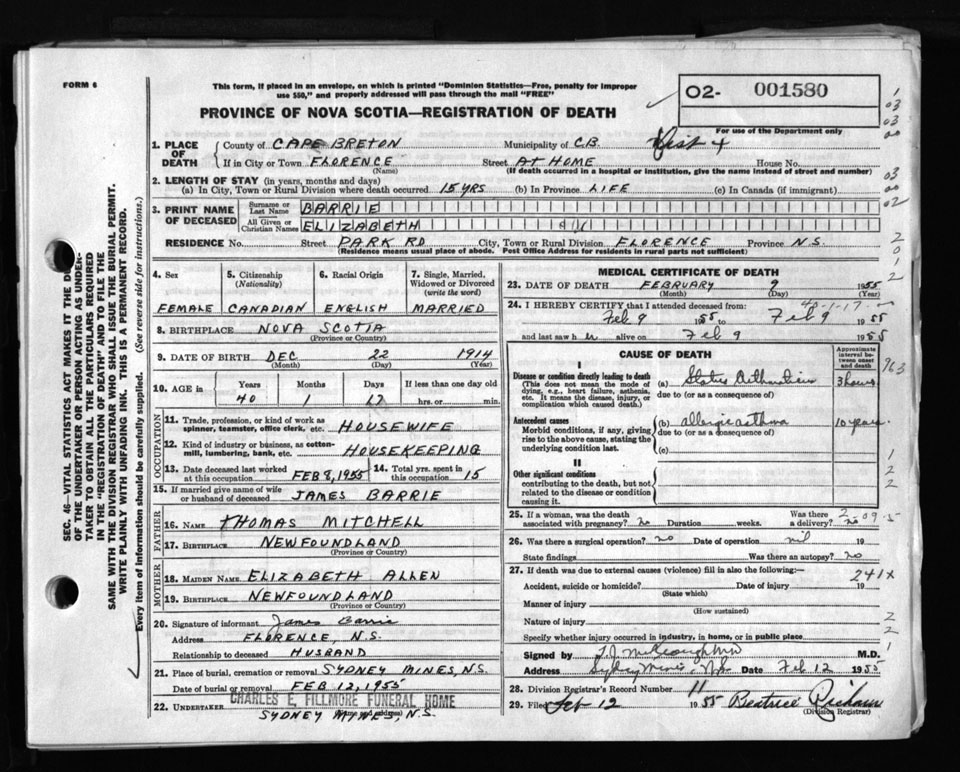 FORM 6
This form, if placed in an envelope, on which is printed "Dominion Statistics—Free, penalty for improper
use $50," and properly addressed will pass through the mail "FREE"
PROVINCE OF NOVA SCOTIA—REGISTRATION OF DEATH
02- 001580
For use of the Department only
1. PLACE OF DEATH
County of CAPE BRETON Municipality of C.B. Dist 4
If in City or Town FLORENCE Street AT HOME House No.
(Name) (If death occurred in a hospital or institution, give the name instead of street and number)
2. LENGTH OF STAY (in years, months and days)
(a) In City, Town or Rural Division where death occurred 15 YRS (b) In Province LIFE (c) In Canada (if immigrant)
3. PRINT NAME OF DECEASED
Surname or Last Name BARRIE
All Given or Christian Names ELIZABETH
RESIDENCE No. Street PARK RD City, Town or Rural Division FLORENCE Province N.S.
(Residence means usual place of abode. Post Office Address for residents in rural parts not sufficient)
SEC. 46—VITAL STATISTICS ACT MAKES IT THE
OF THE UNDERTAKER OR PERSON ACTING AS UNDER-
TAKER TO OBTAIN ALL THE PARTICULARS REQUIRED
IN THE "REGISTRATION OF DEATH" AND TO FILE THE
SAME WITH THE DIVISION REGISTRAR WHO SHALL ISSUE THE BURIAL PERMIT.
WRITE PLAINLY WITH UNFADING INK. THIS IS A PERMANENT RECORD.
Every item of information should be carefully supplied. (See reverse side for instructions.)
4. Sex
FEMALE
5. Citizenship
(Nationality)
CANADIAN
6. Racial Origin
ENGLISH
7. Single, Married,
Widowed or Divorced
(write the word)
MARRIED
8. BIRTHPLACE NOVA SCOTIA
(Province or Country)
9. DATE OF BIRTH DEC 22 1914
(Month) (Day) (Year)
10. AGE in
Years Months Days If less than one day old
40 1 17 hrs. or min.
OCCUPATION
11. Trade, profession, or kind of work as
spinner, teamster, office clerk, etc. HOUSEWIFE
12. Kind of industry or business, as cotton-
mill, lumbering, bank, etc. HOUSEKEEPING
13. Date deceased last worked
at this occupation FEB 8, 1955
14. Total yrs. spent in
this occupation 15
15. If married give name of wife
or husband of deceased JAMES BARRIE
FATHER
16. NAME THOMAS MITCHELL
17. BIRTHPLACE NEWFOUNDLAND
(Province or Country)
MOTHER
18. MAIDEN NAME ELIZABETH ALLEN
19. BIRTHPLACE NEWFOUNDLAND
(Province or Country)
20. Signature of informant James Barrie
Address FLORENCE, N.S.
Relationship to deceased HUSBAND
21. Place of burial, cremation or removal SYDNEY MINES, N.S.
Date of burial or removal FEB 12, 1955
22. UNDERTAKER CHARLES E. FILLMORE FUNERAL HOME
SYDNEY MINES N.S.
MEDICAL CERTIFICATE OF DEATH
23. DATE OF DEATH FEBRUARY 9 1955
(Month) (Day) (Year)
40-1-17
24. I HEREBY CERTIFY that I attended deceased from
Feb 9 1955 to Feb 9 1955
and last saw her alive on Feb 9 1955
CAUSE OF DEATH
Approximate interval between onset and death
I
Disease or condition directly leading to death
(This does not mean the mode of
dying, e.g., heart failure, asthenia,
etc. It means the disease, injury, or
complication which caused death.)
(a) Status Asthmaticus 3 hours
due to (or as a consequence of)
Antecedent causes
Morbid conditions, if any, giving
rise to the above cause, stating the
underlying condition last.
(b) allergic asthma 10 years
due to (or as a consequence of)
(c)
II
Other significant conditions
contributing to the death, but not
related to the disease or condition
causing it.
25. If a woman, was the death Was there
associated with pregnancy? no Duration weeks. a delivery? no
2-09-5
26. Was there a surgical operation? no Date of operation nil 19
State findings Was there an autopsy? no
27. If death was due to external causes (violence) fill in also the following:—
241X
Accident, suicide or homicide? Date of injury 19
(State which)
Manner of injury
(How sustained)
Nature of injury
Specify whether injury occurred in industry, in home, or in public place
Signed by M.D.
Address Sydney Mines, N.S. Date Feb 12 1955
28. Division Registrar's Record Number 11
29. Filed Feb 12 1955 Beatrice
(Division Registrar)